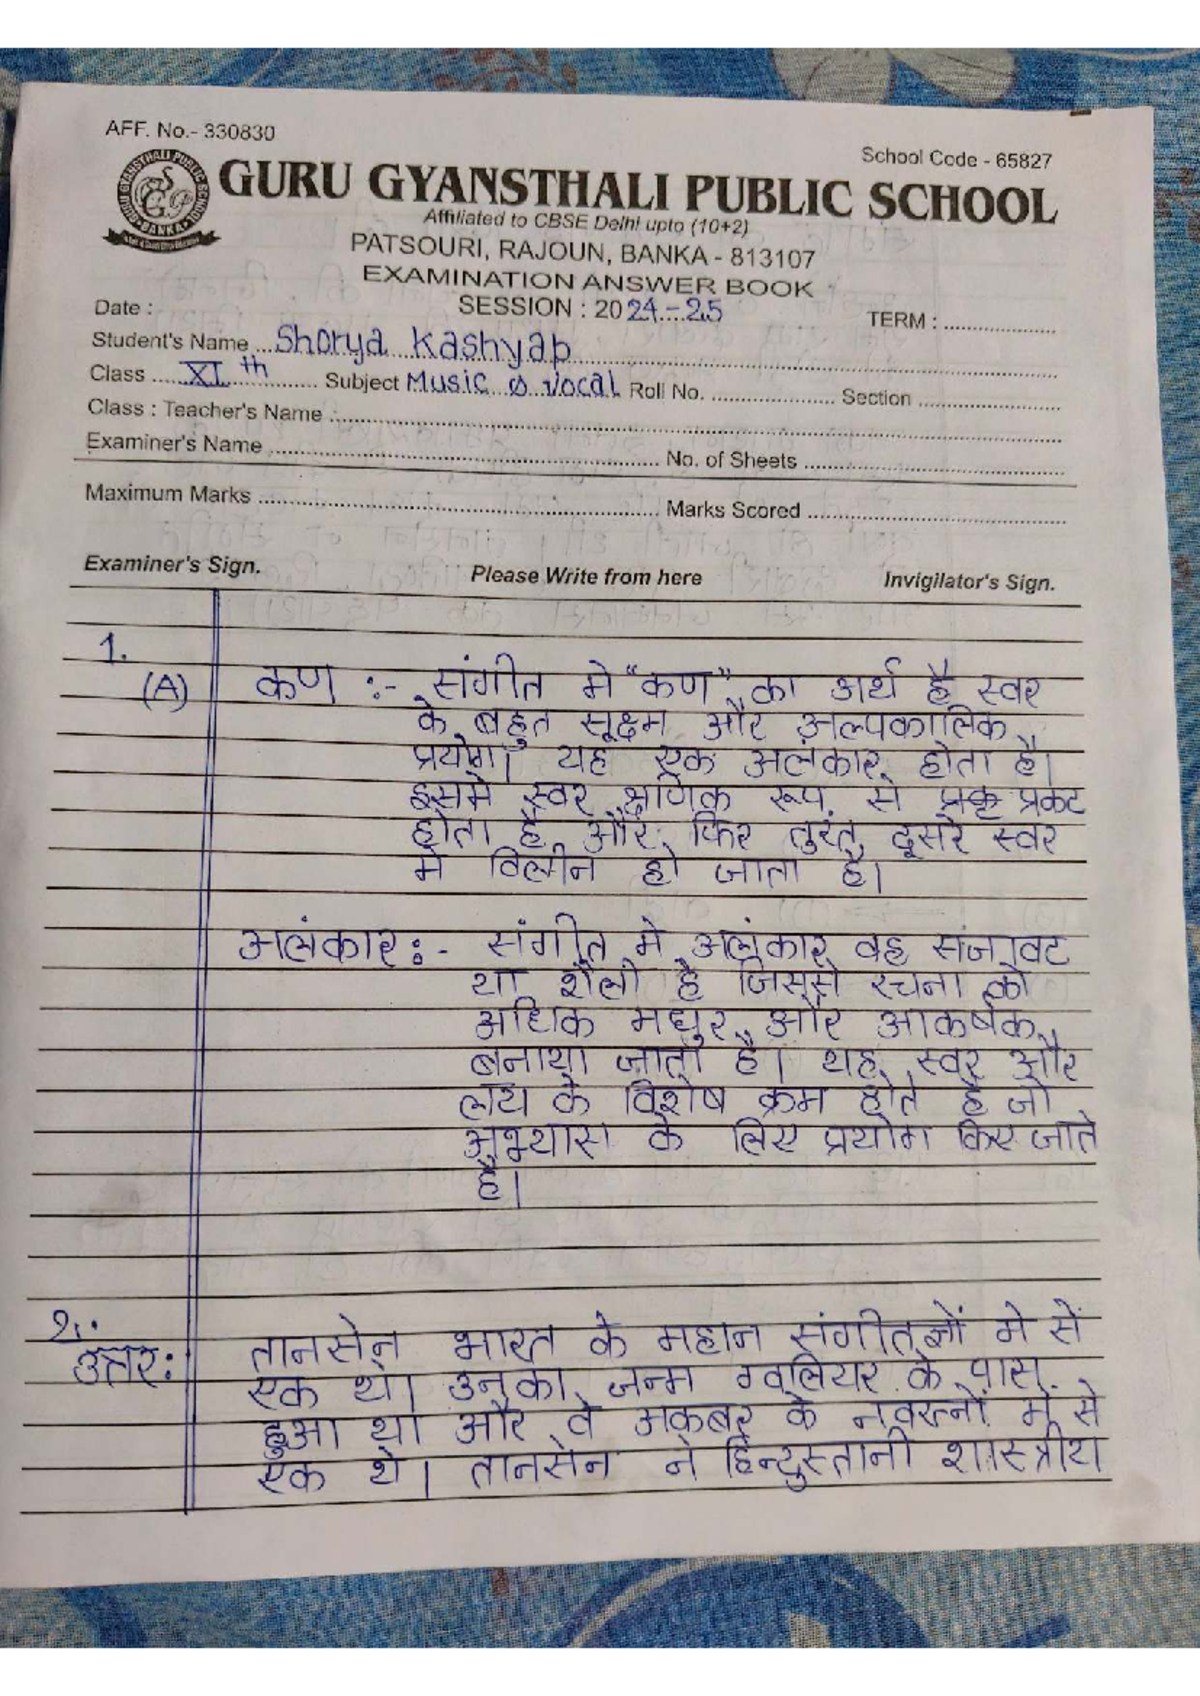 AFF. No.- 330830
School Code - 65827
GURU GYANSTHALI PUBLIC SCHOOL
Affiliated to CBSE Delhi upto (10+2)
PATSOURI, RAJOUN, BANKA - 813107
EXAMINATION ANSWER BOOK
Date : SESSION : 2024-25 TERM :
Student's Name Shorya Kashyap
Class XI th Subject Music Vocal Roll No. Section
Class : Teacher's Name
Examiner's Name No. of Sheets
Maximum Marks Marks Scored
Examiner's Sign. Please Write from here Invigilator's Sign.
1.
(A) कण :- संगीत मे "कण" का अर्थ है स्वर
के बहुत सूक्ष्म और अल्पकालिक
प्रयोग। यह एक अलंकार होता है।
इसमे स्वर क्षणिक रूप से प्रकट
होता है और फिर तुरंत दूसरे स्वर
मे विलीन हो जाता है।
अलंकार :- संगीत मे अलंकार वह सजावट
या शैली है जिससे रचना को
अधिक मधुर और आकर्षक
बनाया जाता है। यह स्वर और
लय के विशेष क्रम होते है जो
अभ्यास के लिए प्रयोग किए जाते
है।
2.
उत्तर: तानसेन भारत के महान संगीतज्ञों मे सें
एक थे। उनका जन्म ग्वलियर के पास
हुआ था और वे अकबर के नवरत्नों में से
एक थे। तानसेन ने हिन्दुस्तानी शास्त्रीय